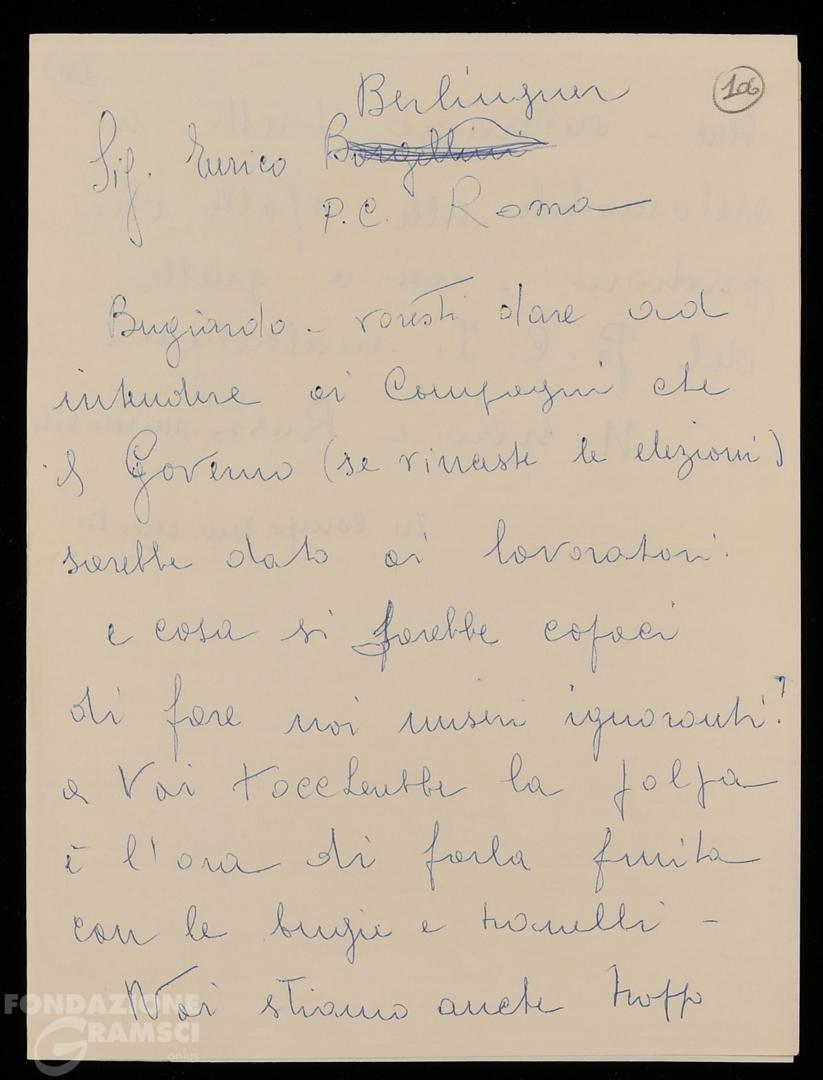 Berlinguer
106
Sig. Enrico Borzellini
P.C. Roma
Bugiardo - voresti dare ad
intendere ai Compagni che
il Governo (se vinceste le elezioni)
sarebbe dato ai lavoratori.
e cosa si sarebbe capaci
di fare noi miseri ignoranti?
a Voi toccherebbe la polpa
è l'ora di farla finita
con le bugie e tranelli -
Noi stiamo anche tropp
FONDAZIONE
GRAMSCI
onlus